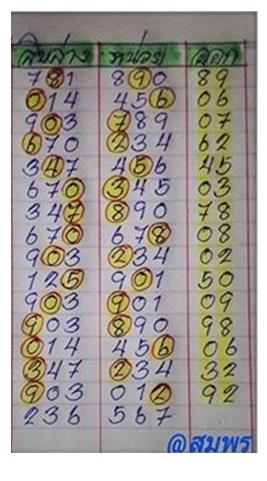 สิบล่าง หน่วย ออก
781 890 89
014 456 06
903 789 07
670 234 62
347 456 45
670 345 03
347 890 78
670 678 08
903 234 02
125 901 50
903 901 09
903 890 98
014 456 06
347 234 32
903 012 92
236 567
@สมพร